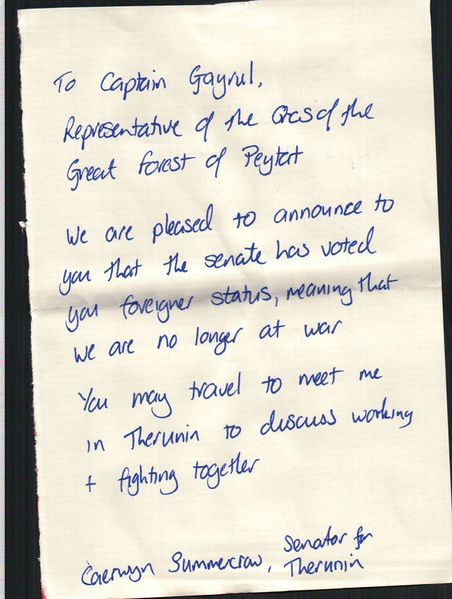 To Captain Gaynul,
Representative of the Orcs of the
Great Forest of Peytort
We are pleased to announce to
you that the senate has voted
you foreigner status, meaning that
we are no longer at war
You may travel to meet me
in Therunin to discuss working
+ fighting together
Caerwyn Summercrow, Senator for
Therunin